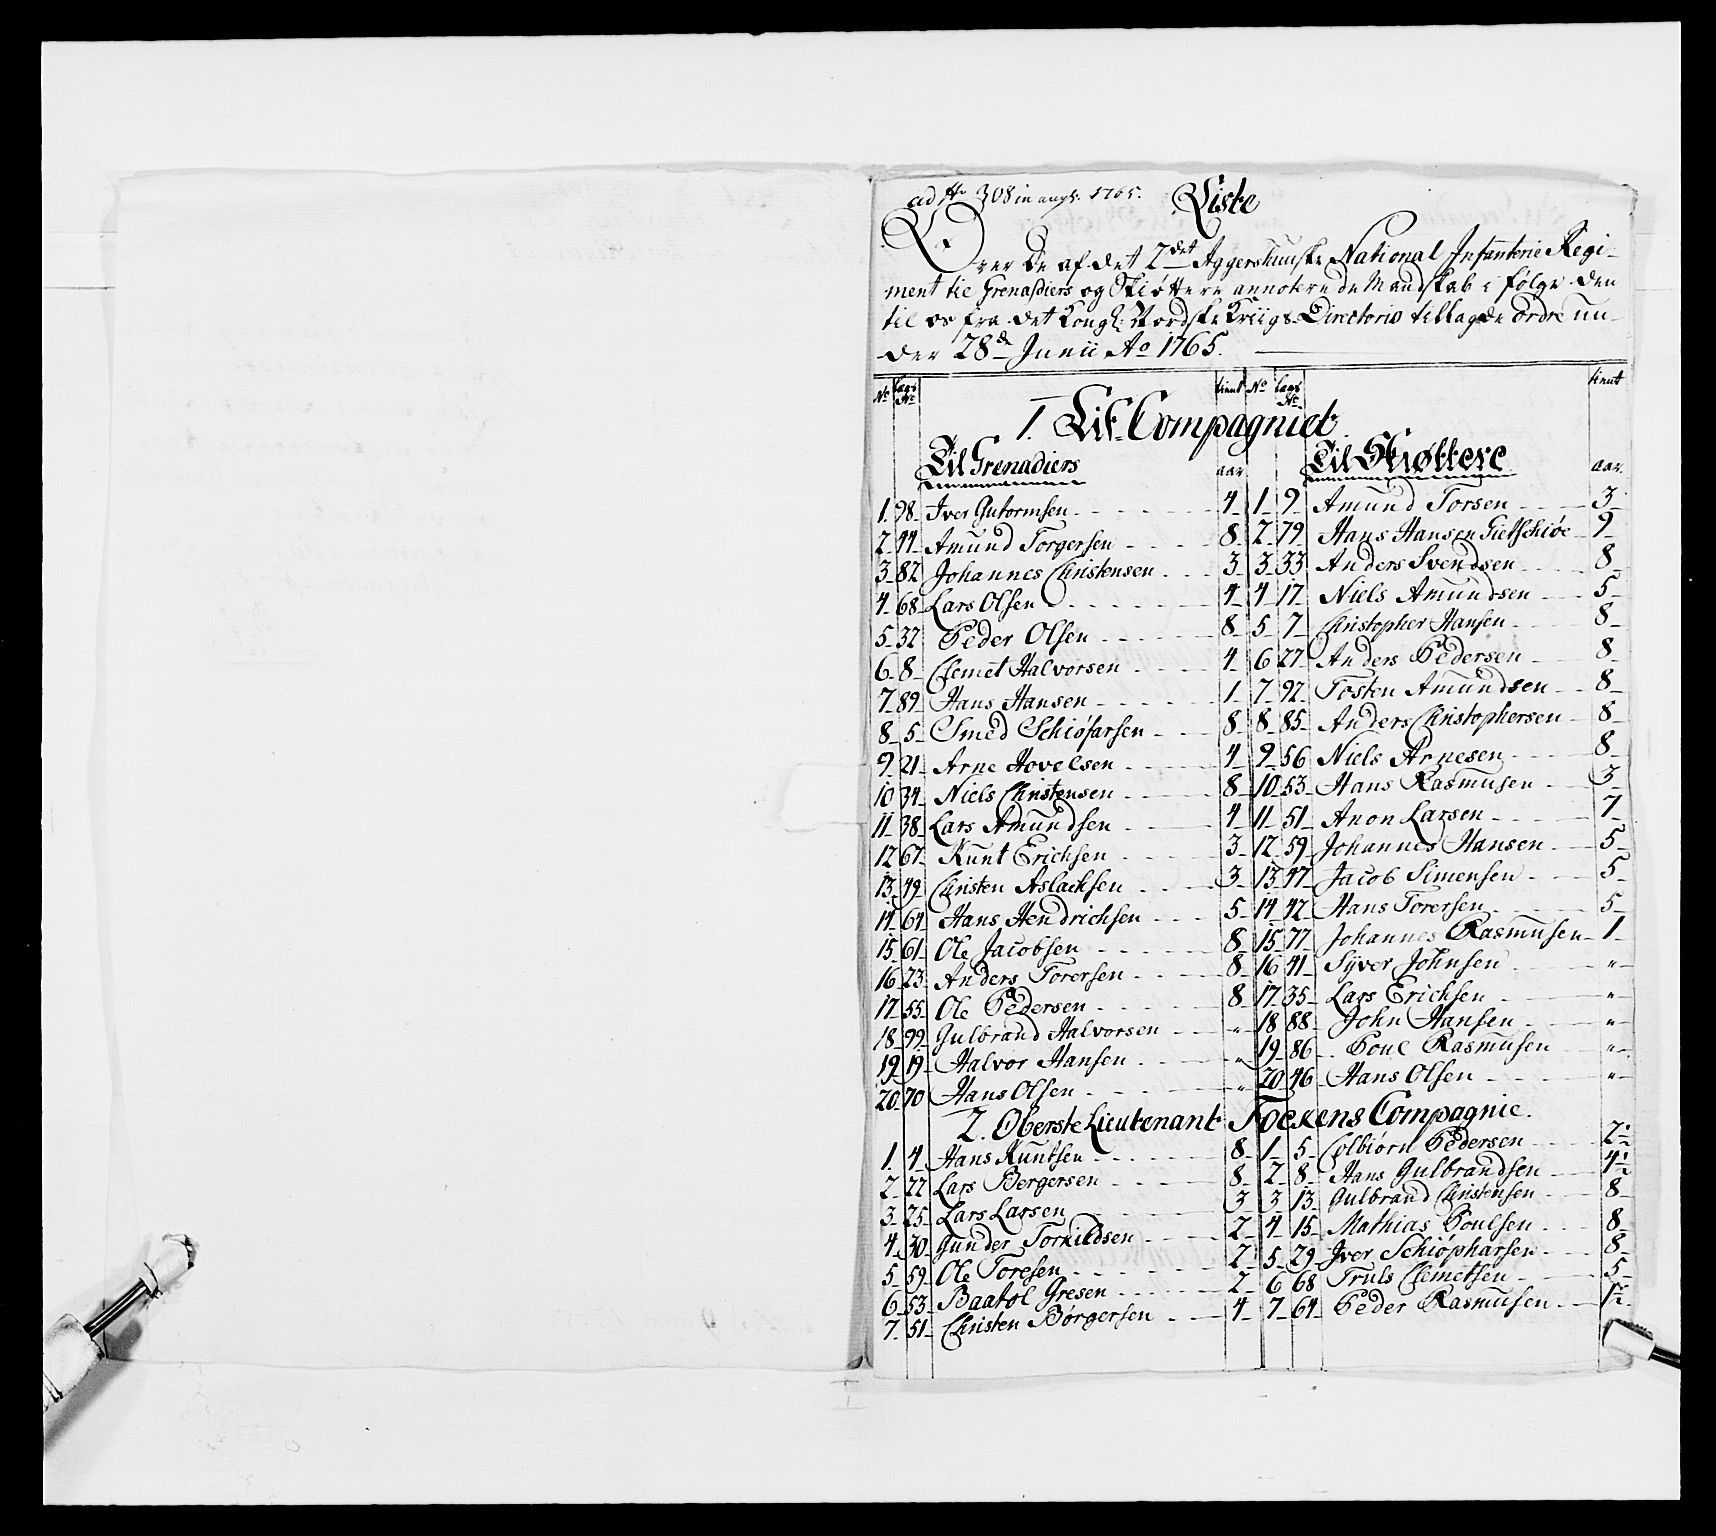 ad No 308 in aug. 1765. Liste
Over De af det 2det Aggershuuske National Infanterie Regi-
ment til Grenadiers og Skiøttere annoterede Mandskab i følge den
til os fra det Kongl: Nordske Kriigs-Directorio tillagde Ordre un-
der 28de Junii Ao 1765.
No Lægs No tient No Lægs No tient
1. Lif-Compagniet.
Til Grenadiers aar Til Skøttere aar.
1. 98. Iver Gutormsen 4 1 9 Amund Torsen 3
2 44 Amund Torgersen 8 2 79 Hans Hansen Gietschiøe 9
3 82 Johannes Christensen 3 3 33 Anders Svendsen 8
4 68 Lars Olsen 4 4 17 Niels Amundsen 5
5 32 Peder Olsen 8 5 7 Christopher Hansen 8
6 8 Clemet Halvorsen 4 6 27 Anders Pedersen 8
7 89 Hans Hansen 1 7 92 Tosten Amundsen 8
8 5 Smed Schiøfarsen 8 8 85 Anders Christophersen 8
9 21 Arne Hovelsen 4 9 56 Niels Arnesen 8
10 34 Niels Christensen 8 10 53 Hans Rasmusen 3
11 38 Lars Amundsen 4 11 51 Anon Larsen 7
12 67 Kunt Erichsen 3 12 59 Johannes Hansen 5
13 49 Christen Aslachsen 3 13 47 Jacob Simensen 5
14 64 Hans Hendrichsen 5 14 42 Hans Torersen 5
15 61 Ole Jacobsen 8 15 77 Johannes Rasmusen 1
16 23 Anders Torersen 8 16 41 Syver Johnsen "
17 55 Ole Pedersen 8 17 35 Lars Erichsen "
18 99 Gulbrand Halvorsen " 18 88 John Hansen "
19 19 Halvor Hansen " 19 86 Poul Rasmusen "
20 70 Hans Olsen " 20 46 Hans Olsen "
2. Oberste Lieutenant Fockens Compagnie.
1 4 Hans Kuntsen 8 1 5 Colbiørn Pedersen 2½
2 22 Lars Bergersen 8 2 8 Hans Gulbrandsen 4½
3 25 Lars Larsen 3 3 13 Gulbrand Christensen 8
4 30 Gunder Torkildsen 2 4 15 Mathias Poulsen 8
5 59 Ole Toresen 2 5 29 Iver Schiøpharsen 8
6 53 Baatol Gresen 2 6 68 Truls Clemetsen 5
7 51 Christen Børgersen 4 7 64 Peder Rasmusen 1½